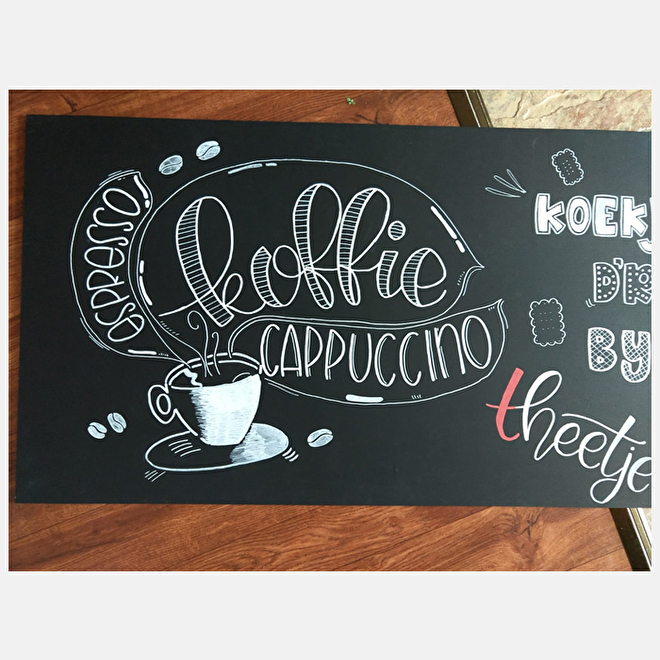 espresso
koffie
CAPPUCCINO
KOEKJ
D'R
BY
theetje